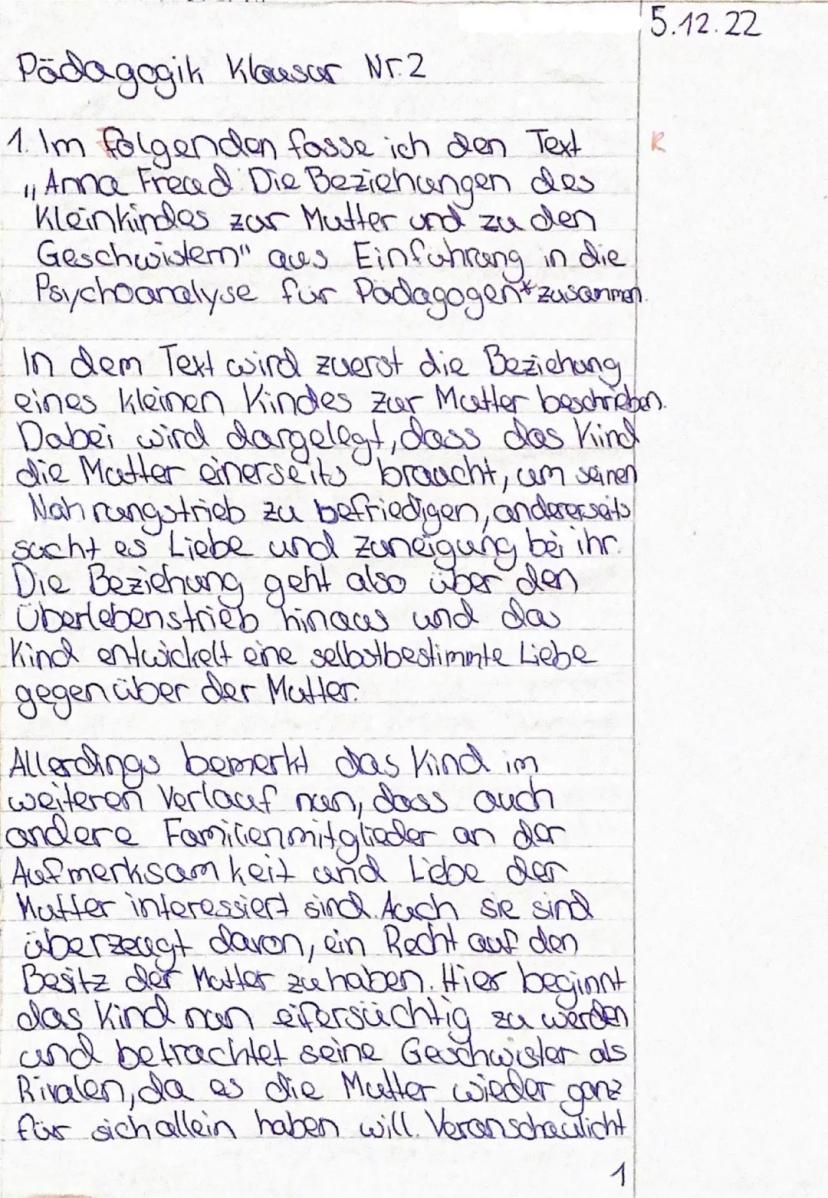 5.12.22
Pädagogik Klausur Nr. 2
1. Im folgenden fasse ich den Text
R
„Anna Freud: Die Beziehungen des
Kleinkindes zur Mutter und zu den
Geschwistern" aus Einführung in die
Psychoanalyse für Pädagogen* zusammen.
In dem Text wird zuerst die Beziehung
eines kleinen Kindes zur Mutter beschrieben.
Dabei wird dargelegt, dass das Kind
die Mutter einerseits braucht, um seinen
Nahrungstrieb zu befriedigen, andererseits
sucht es Liebe und Zuneigung bei ihr.
Die Beziehung geht also über den
Überlebenstrieb hinaus und das
Kind entwickelt eine selbstbestimmte Liebe
gegenüber der Mutter.
Allerdings bemerkt das Kind im
weiteren Verlauf nun, dass auch
andere Familienmitglieder an der
Aufmerksamkeit und Liebe der
Mutter interessiert sind. Auch sie sind
überzeugt davon, ein Recht auf den
Besitz der Mutter zu haben. Hier beginnt
das Kind nun eifersüchtig zu werden
und betrachtet seine Geschwister als
Rivalen, da es die Mutter wieder ganz
für sich allein haben will. Veranschaulicht
1